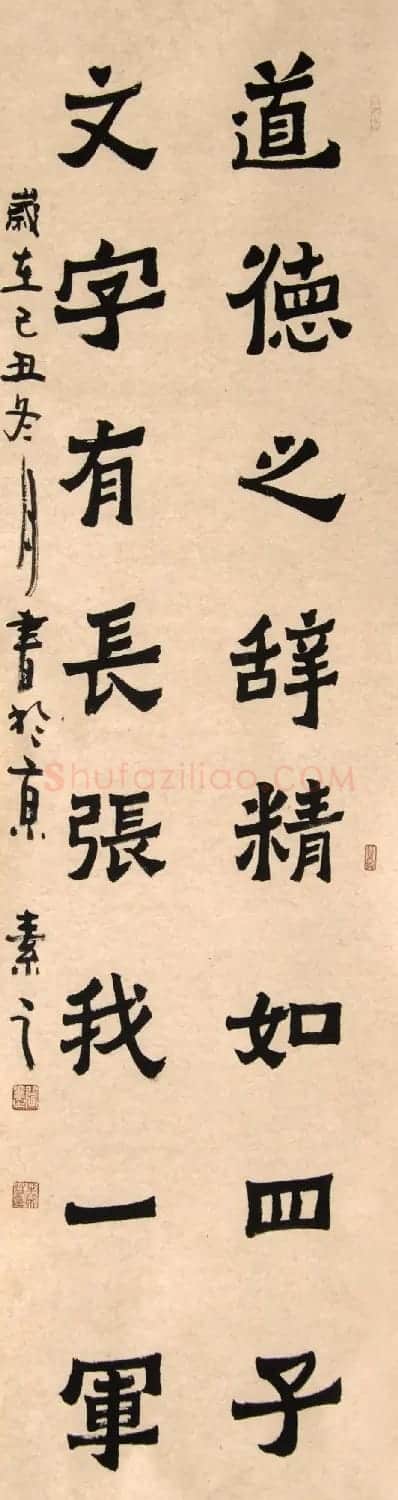 道德之辞精如四子
文字有長張我一軍
歲在己丑冬月書於京 素之
Shufaziliao.COM